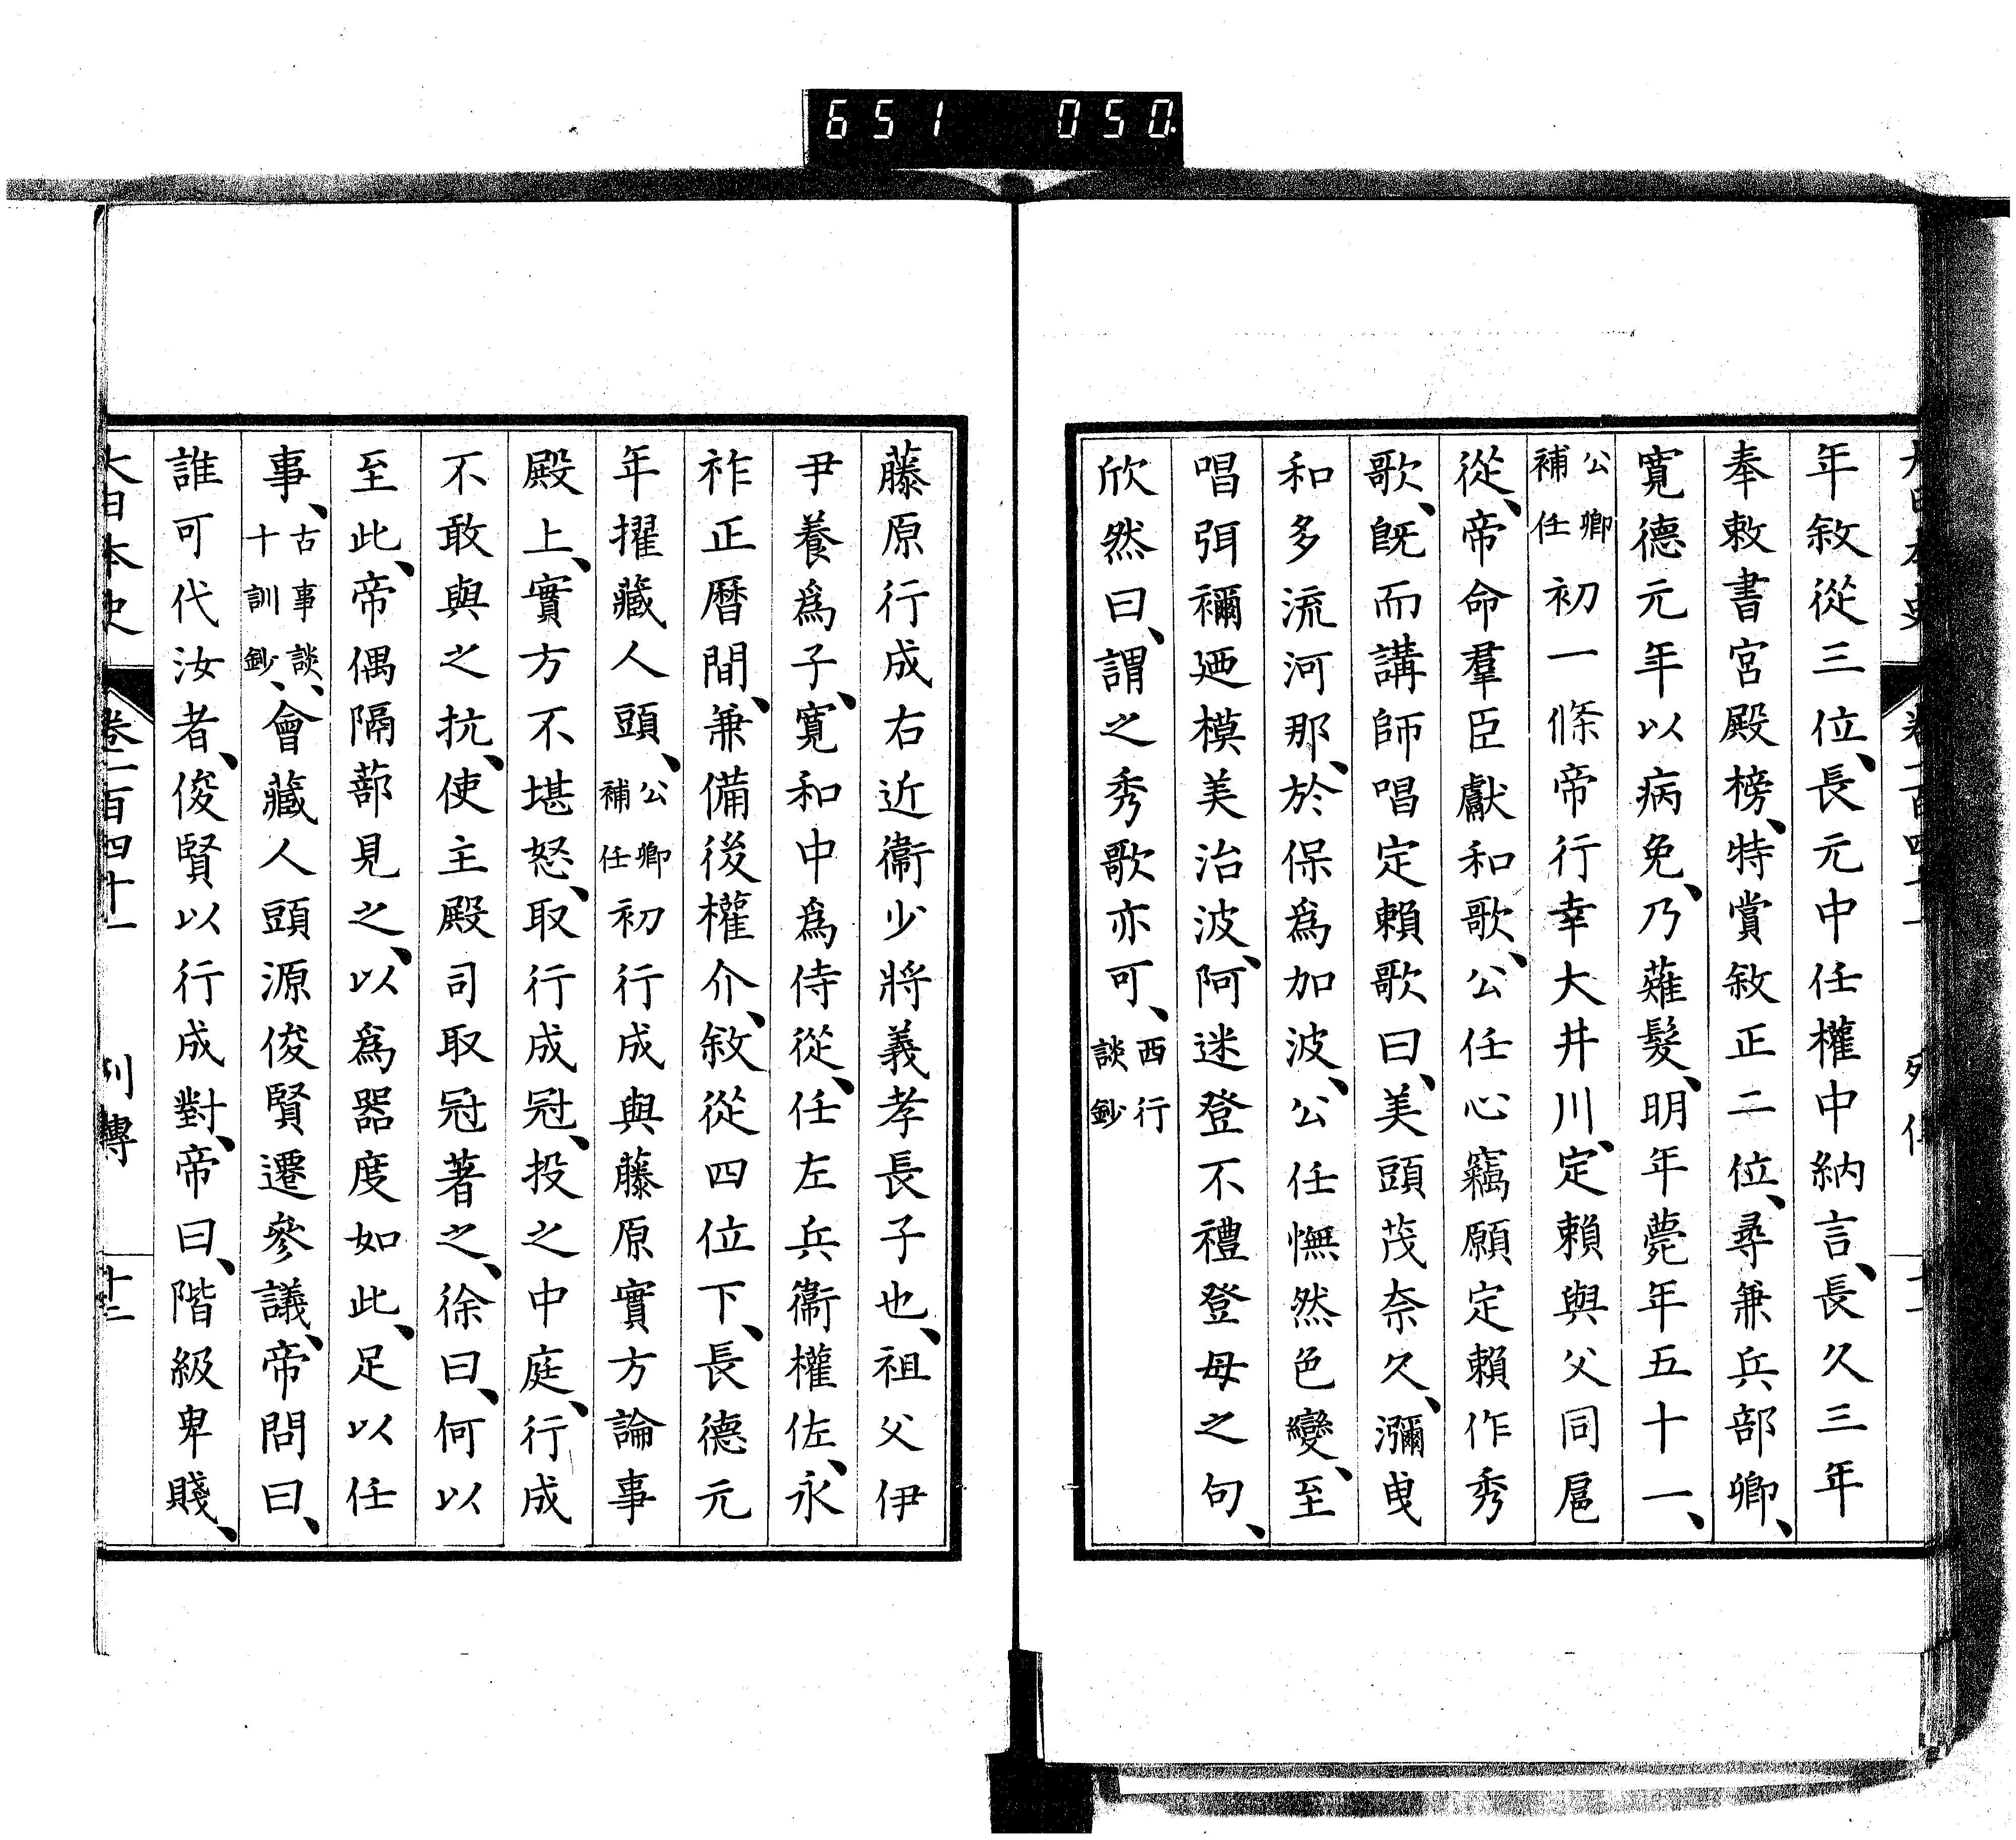 651 050
年敘從三位、長元中任權中納言、長久三年
奉敕書宮殿榜、特賞敘正二位、尋兼兵部卿、
寬德元年以病免、乃薙髮、明年薨年五十一、
公卿補任初一條帝行幸大井川、定賴與父同扈
從、帝命羣臣獻和歌、公任心竊願定賴作秀
歌、旣而講師唱定賴歌曰、美頭茂奈久、瀰曳
和多流河那、於保爲加波、公任憮然色變、至
唱弭禰廼模美治波、阿迷登不禮登母之句、
欣然曰、謂之秀歌亦可、西行談鈔
藤原行成右近衞少將義孝長子也、祖父伊
尹養爲子、寬和中爲侍從、任左兵衞權佐、永
祚正曆間、兼備後權介、敘從四位下、長德元
年擢藏人頭、公卿補任初行成與藤原實方論事
殿上、實方不堪怒、取行成冠、投之中庭、行成
不敢與之抗、使主殿司取冠著之、徐曰、何以
至此、帝偶隔蔀見之、以爲器度如此、足以任
事、古事談、十訓鈔、會藏人頭源俊賢遷參議、帝問曰、
誰可代汝者、俊賢以行成對、帝曰、階級卑賤、
大日本史 卷一百四十一 列傳 十二